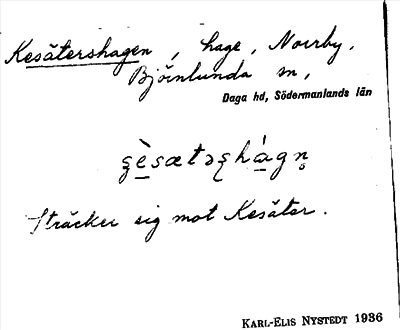 Kesätershagen, hage, Norrby.
Björnlunda sn,
Daga hd, Södermanlands län
Sträcker sig mot Kesäter.
KARL-ELIS NYSTEDT 1936